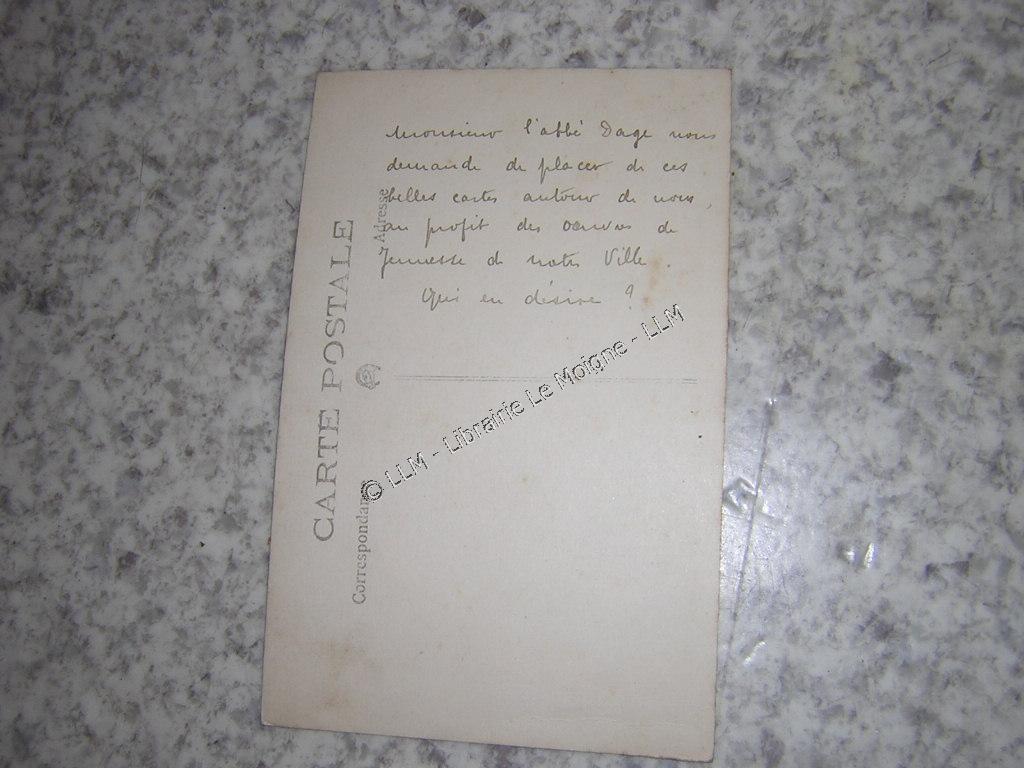 Monsieur l'abbé Dage nous
demande de placer de ces
belles cartes autour de nous,
au profit des œuvres de
Jeunesse de notre Ville.
Qui en désire ?
CARTE POSTALE
Correspondance
Adresse
© LLM - Librairie Le Moigne - LLM